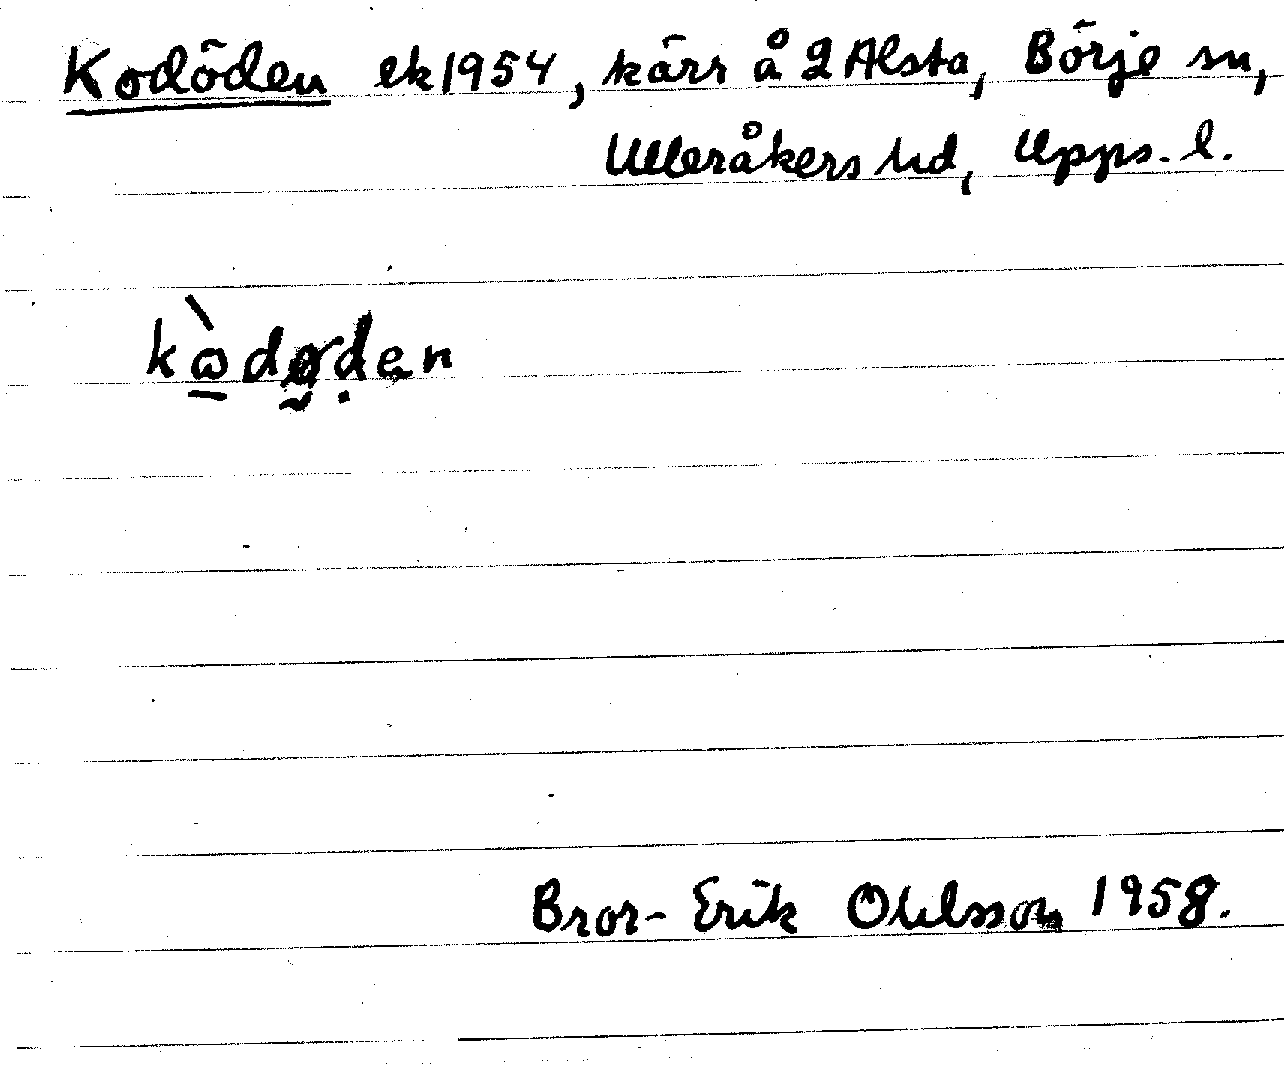 Kodöden ek 1954, kärr å 2 Alsta, Börje sn,
Ulleråkers hd, Upps. l.
kὼdø̰ḍen
Bror-Erik Ohlsson 1958.